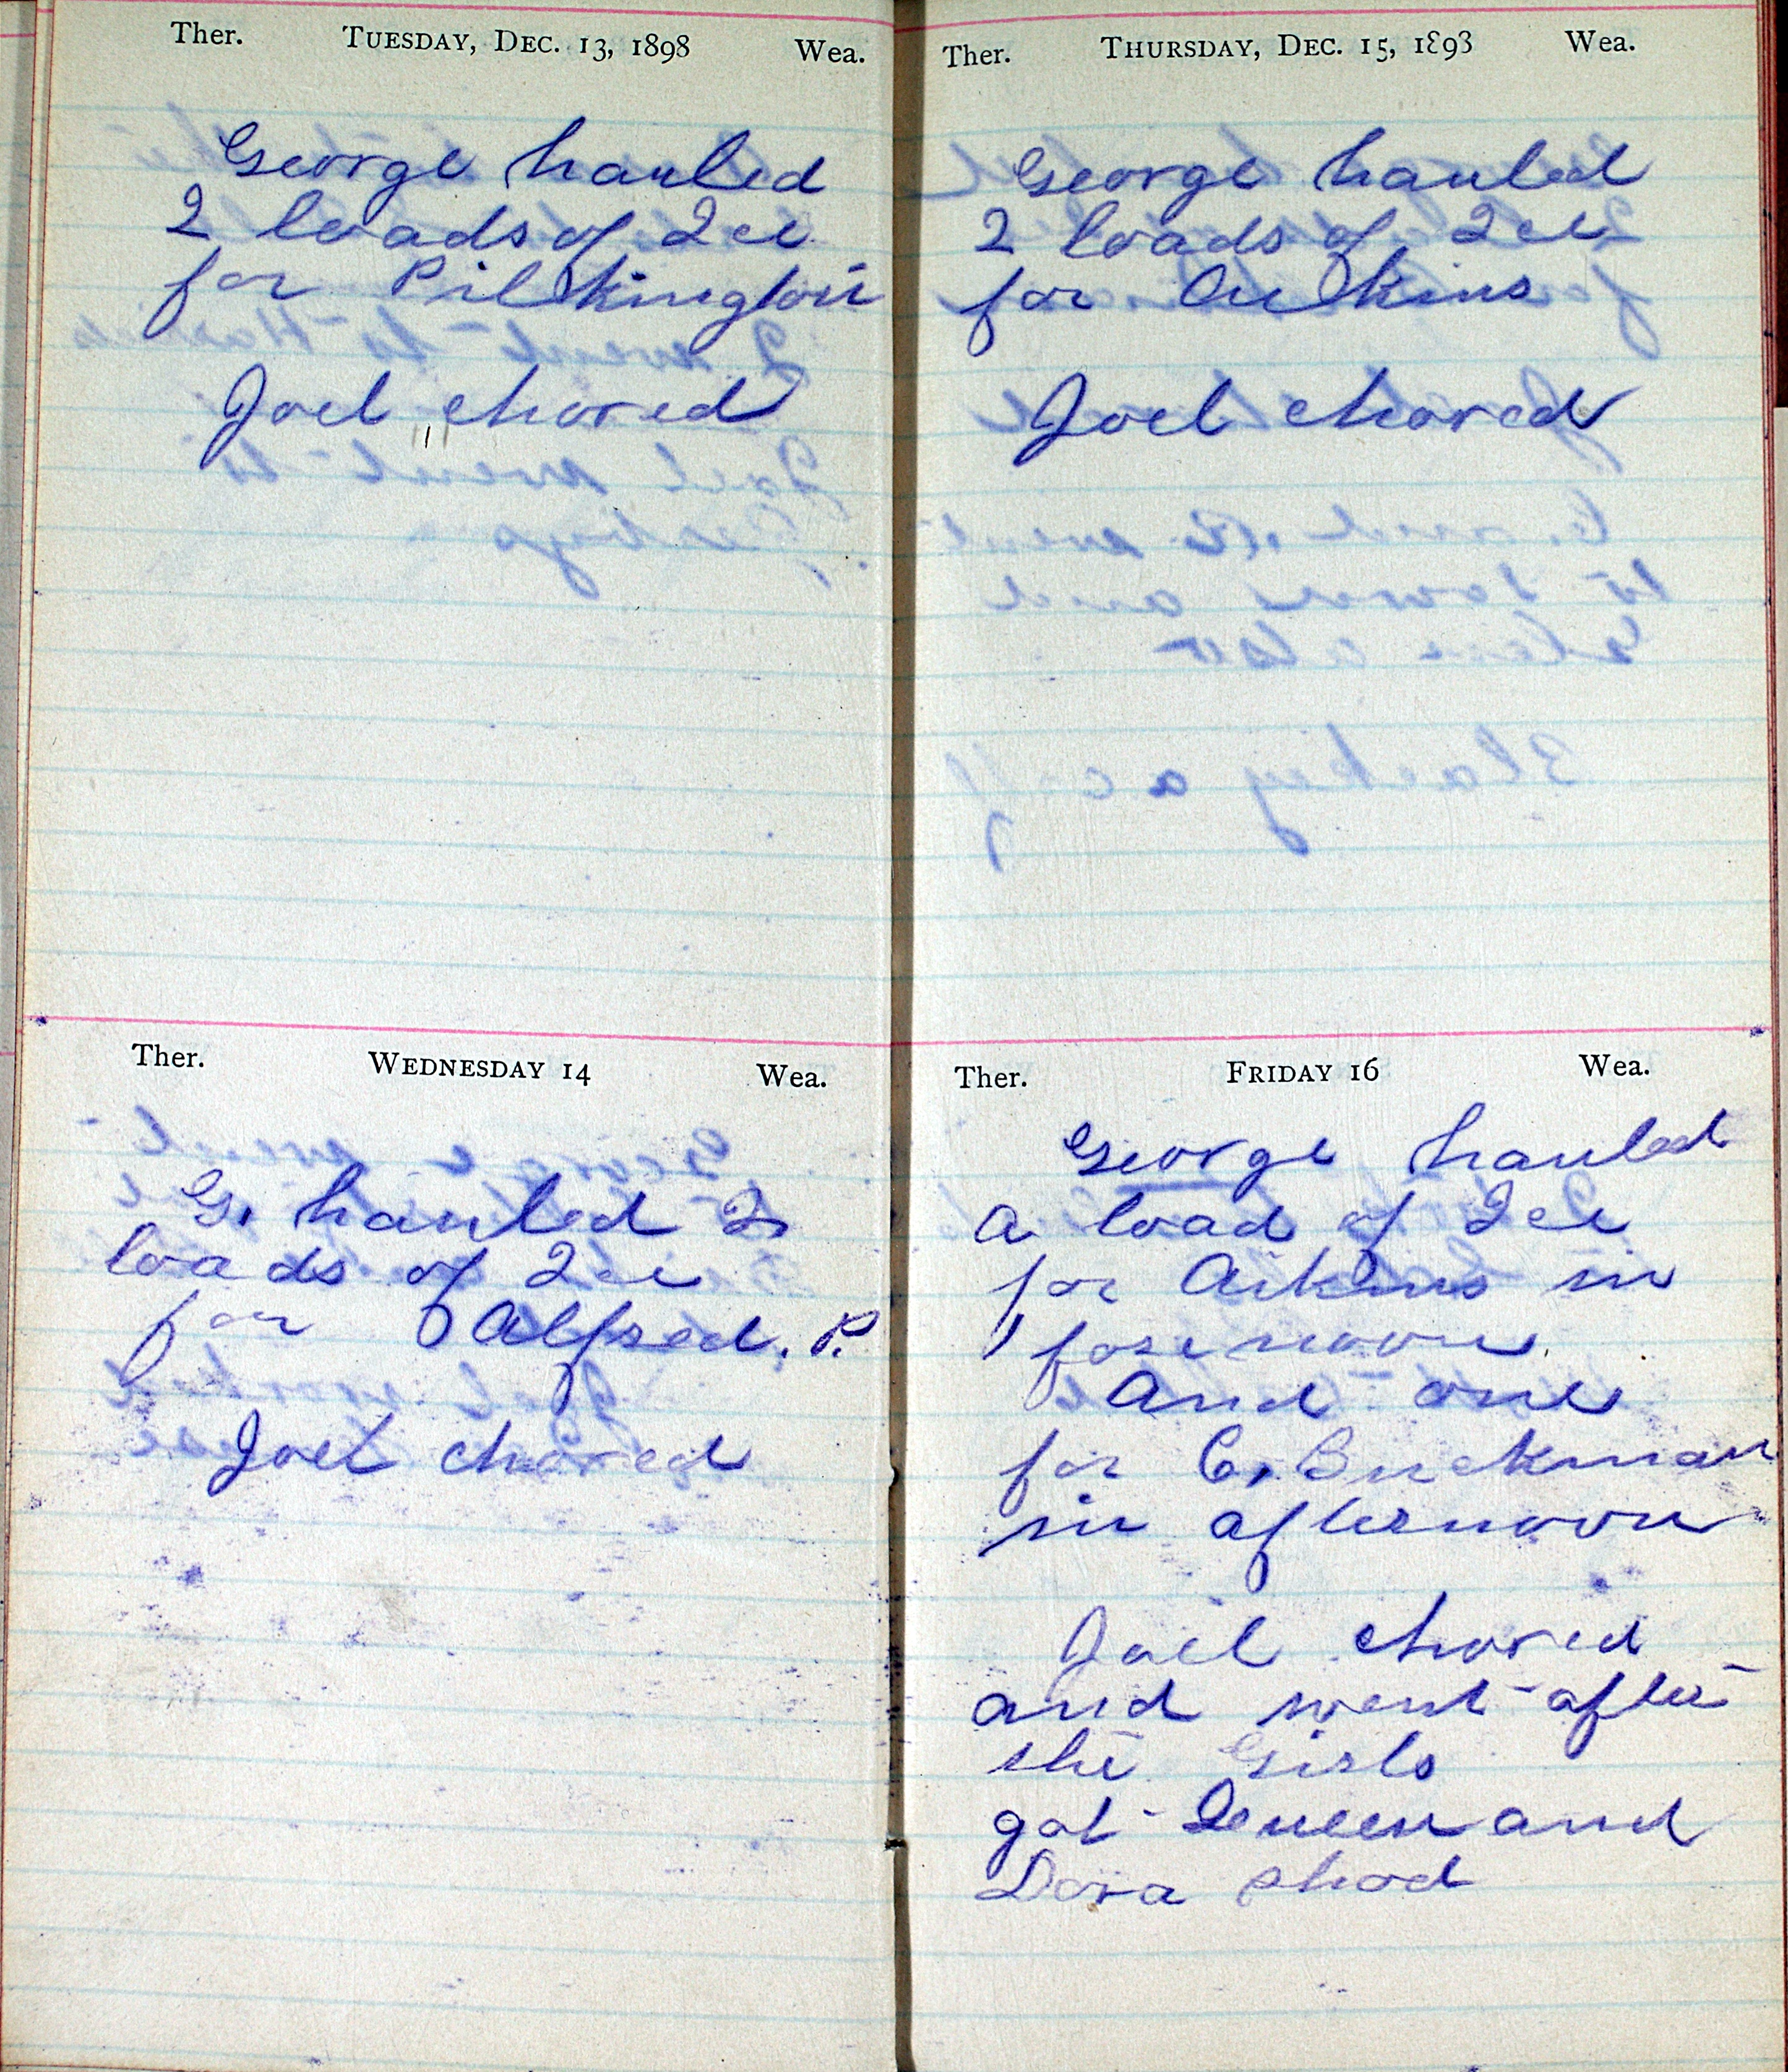 Ther. TUESDAY, DEC. 13, 1898 Wea.
George hauled
2 loads of Ice
for Pilkington
Joel chored
Ther. WEDNESDAY 14 Wea.
G. hauled 2
loads of Ice
for Alfred. P.
Joel chored
Ther. THURSDAY, DEC. 15, 1898 Wea.
George hauled
2 loads of Ice
for Aikins
Joel chored
Ther. FRIDAY 16 Wea.
George hauled
a load of Ice
for Aikins in
forenoon
and one
for C. Buckman
in afternoon
Joel chored
and went after
the Girls
got Queen and
Dora shod